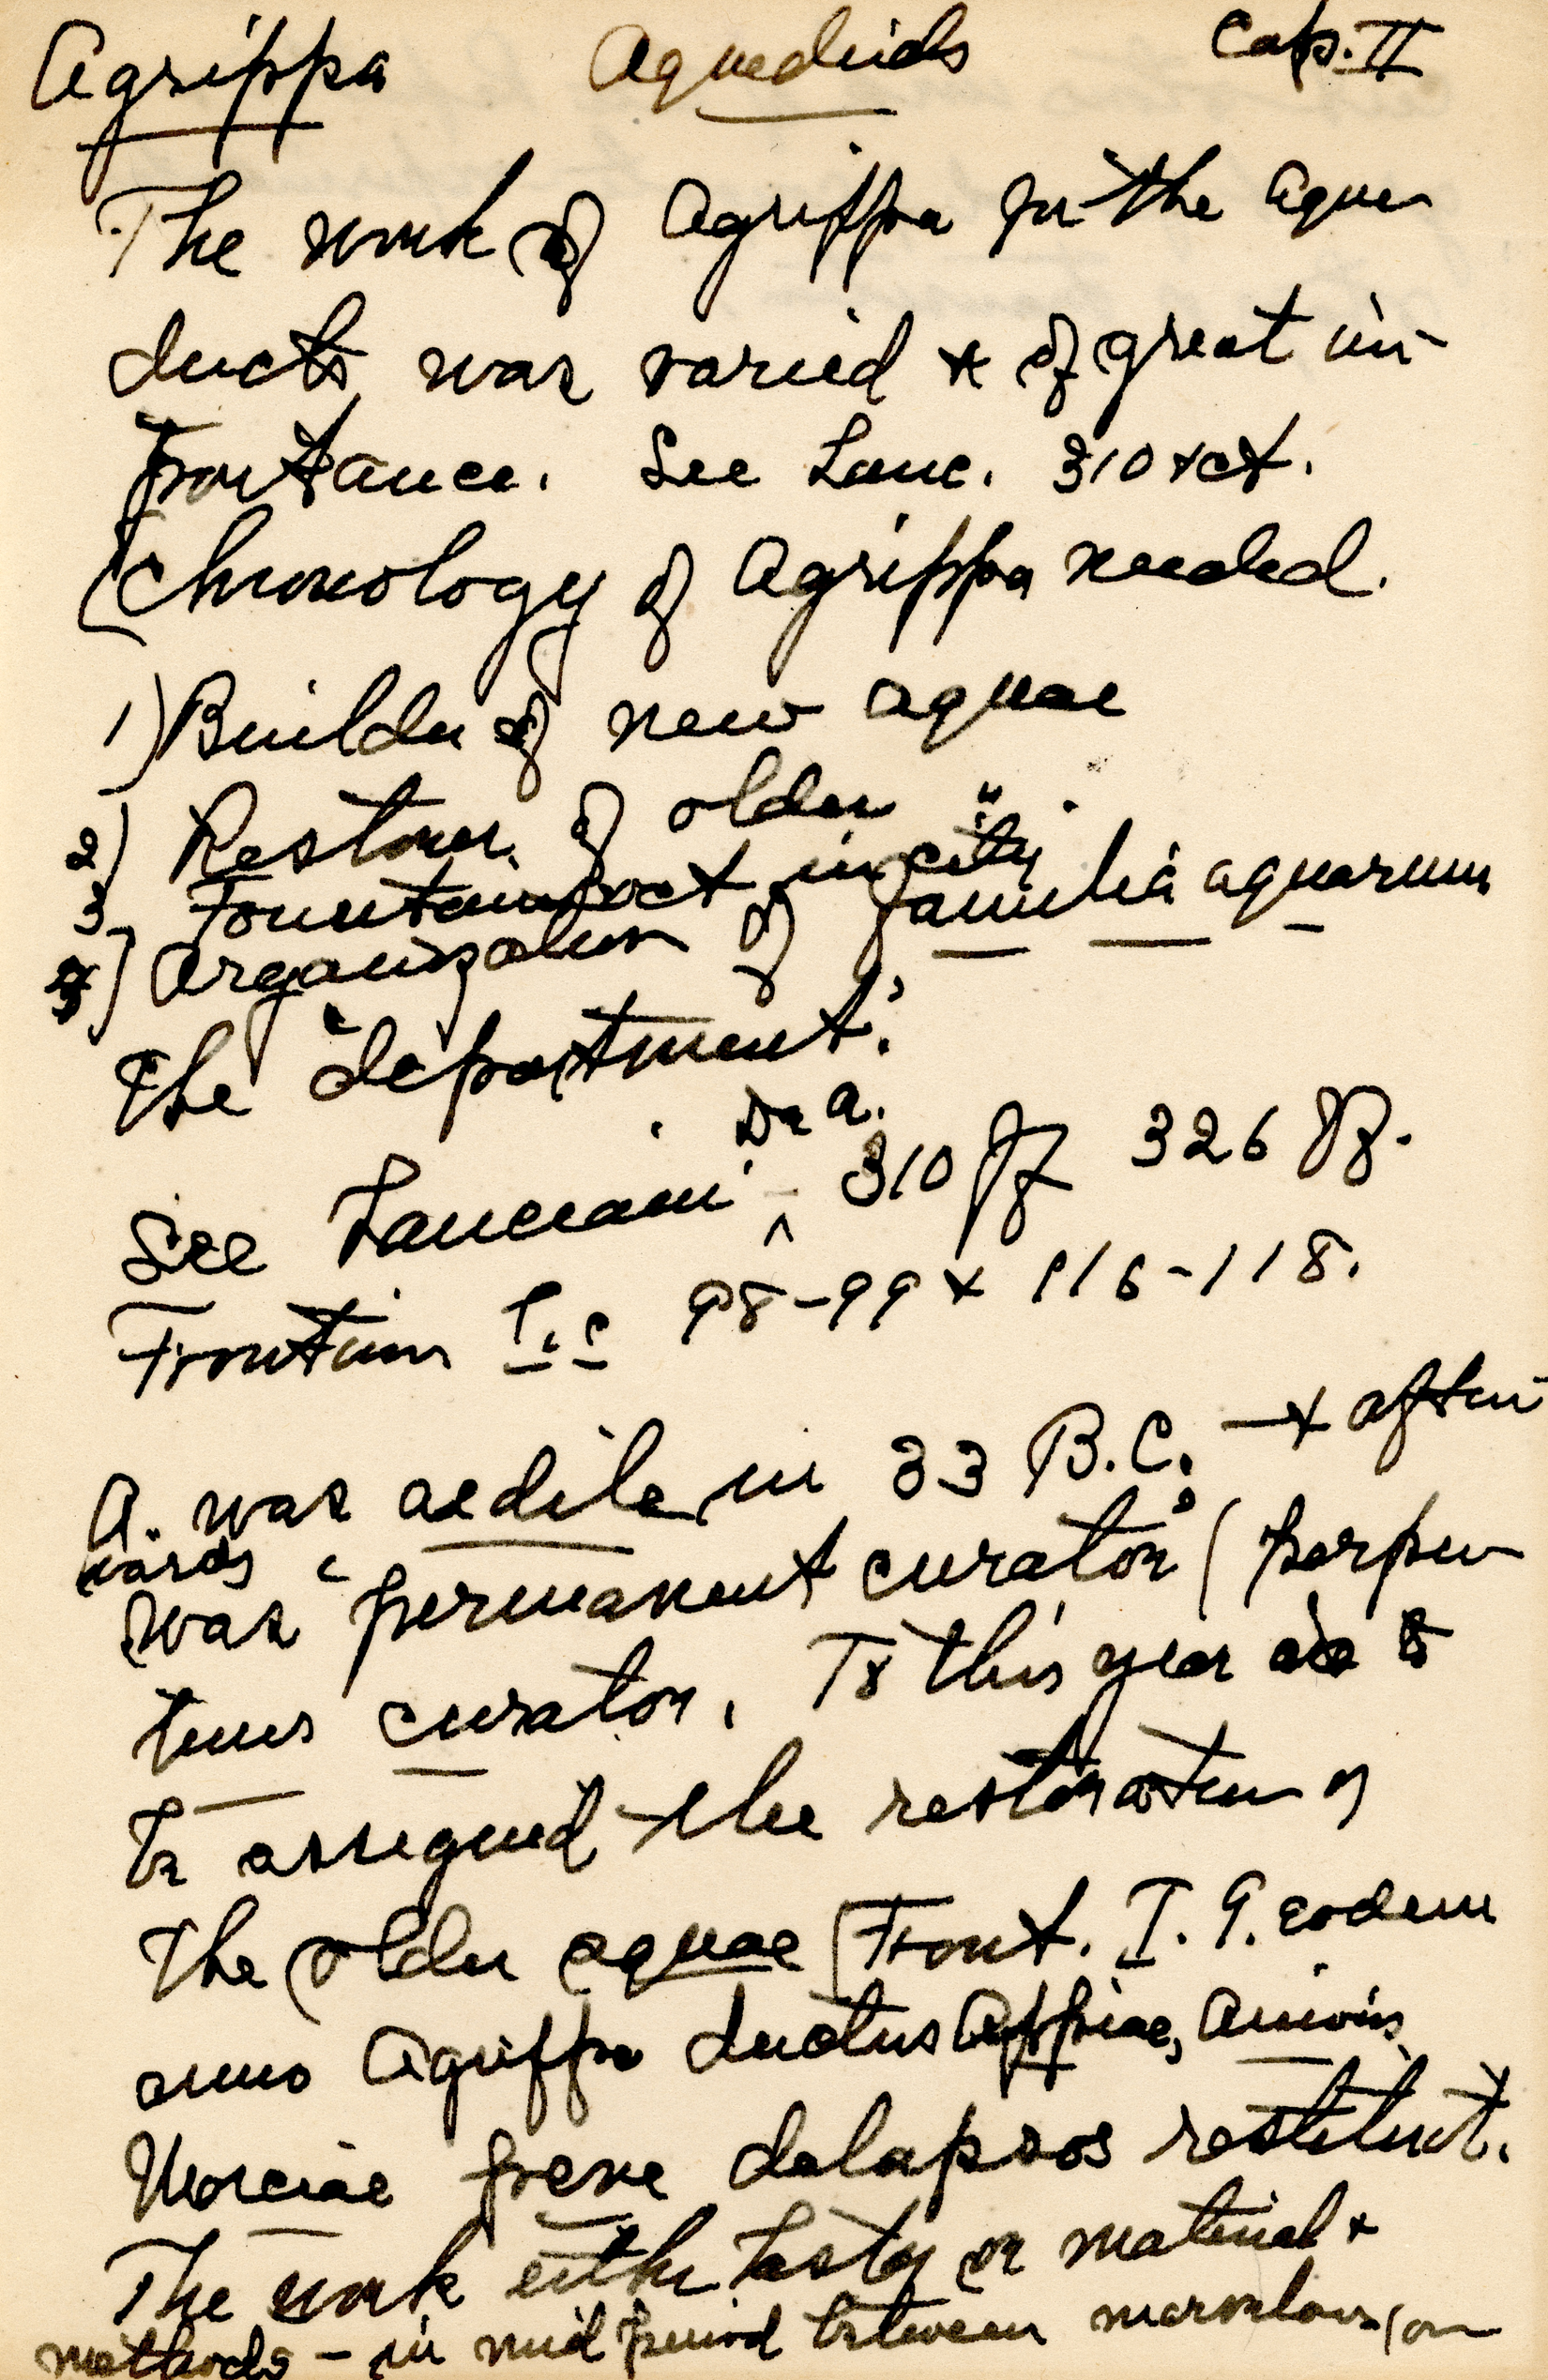 Agrippa Aqueducts Cap. II
The work of Agrippa for the aque
ducts was varied & of great im-
portance. See Lanc. 310 & ct.
(Chronology of Agrippa needed.
1) Builder of new aquae
2) Restorer of older " .
3) Fountains &ct in city
4) Organization of familia aquarum
The "department".
See Lanciani De a. 310 ff 326 ff.
Frontin I. c 98-99 & 116-118.
A. was aedile in 33 B.C. — & after
wards
was "permanent curator" (perpe
tuus curator. To this year is
to assigned the restoration of
the older aquae (Front. I. 9. eodem
anno Agrippa ductus Appiae, Anionis
Marciae paene delapsos restituit.
The work either hasty or material &
methods - in mid period between marvelous (or